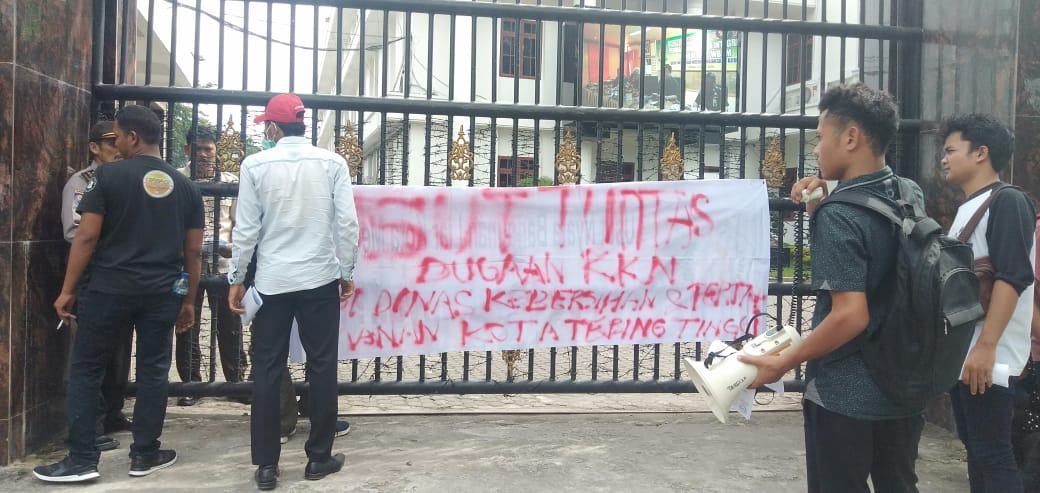 USUT TUNTAS
DUGAAN KKN
DI DINAS KEBERSIHAN & PERTA
MANAN KOTA TEBING TINGGI